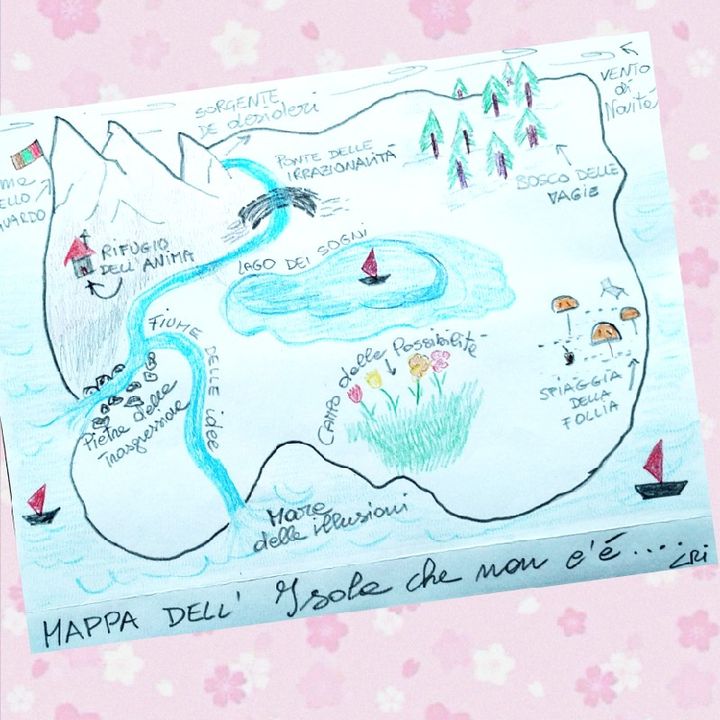 SORGENTE
DE desideri
VENTO
di
Novità
PONTE DELLE
IRRAZIONALITÀ
BOSCO DELLE
VAGIE
LLO
RIFUGIO
DELL'ANIMA
LAGO DEI SOGNI
FIUME DELLE idee
CAMPO delle Possibilità
SPIAGGIA
DELLA
FOLLIA
Pietre delle
Trasgressione
Mare
delle illusioni
MAPPA DELL' Isola che non c'è....